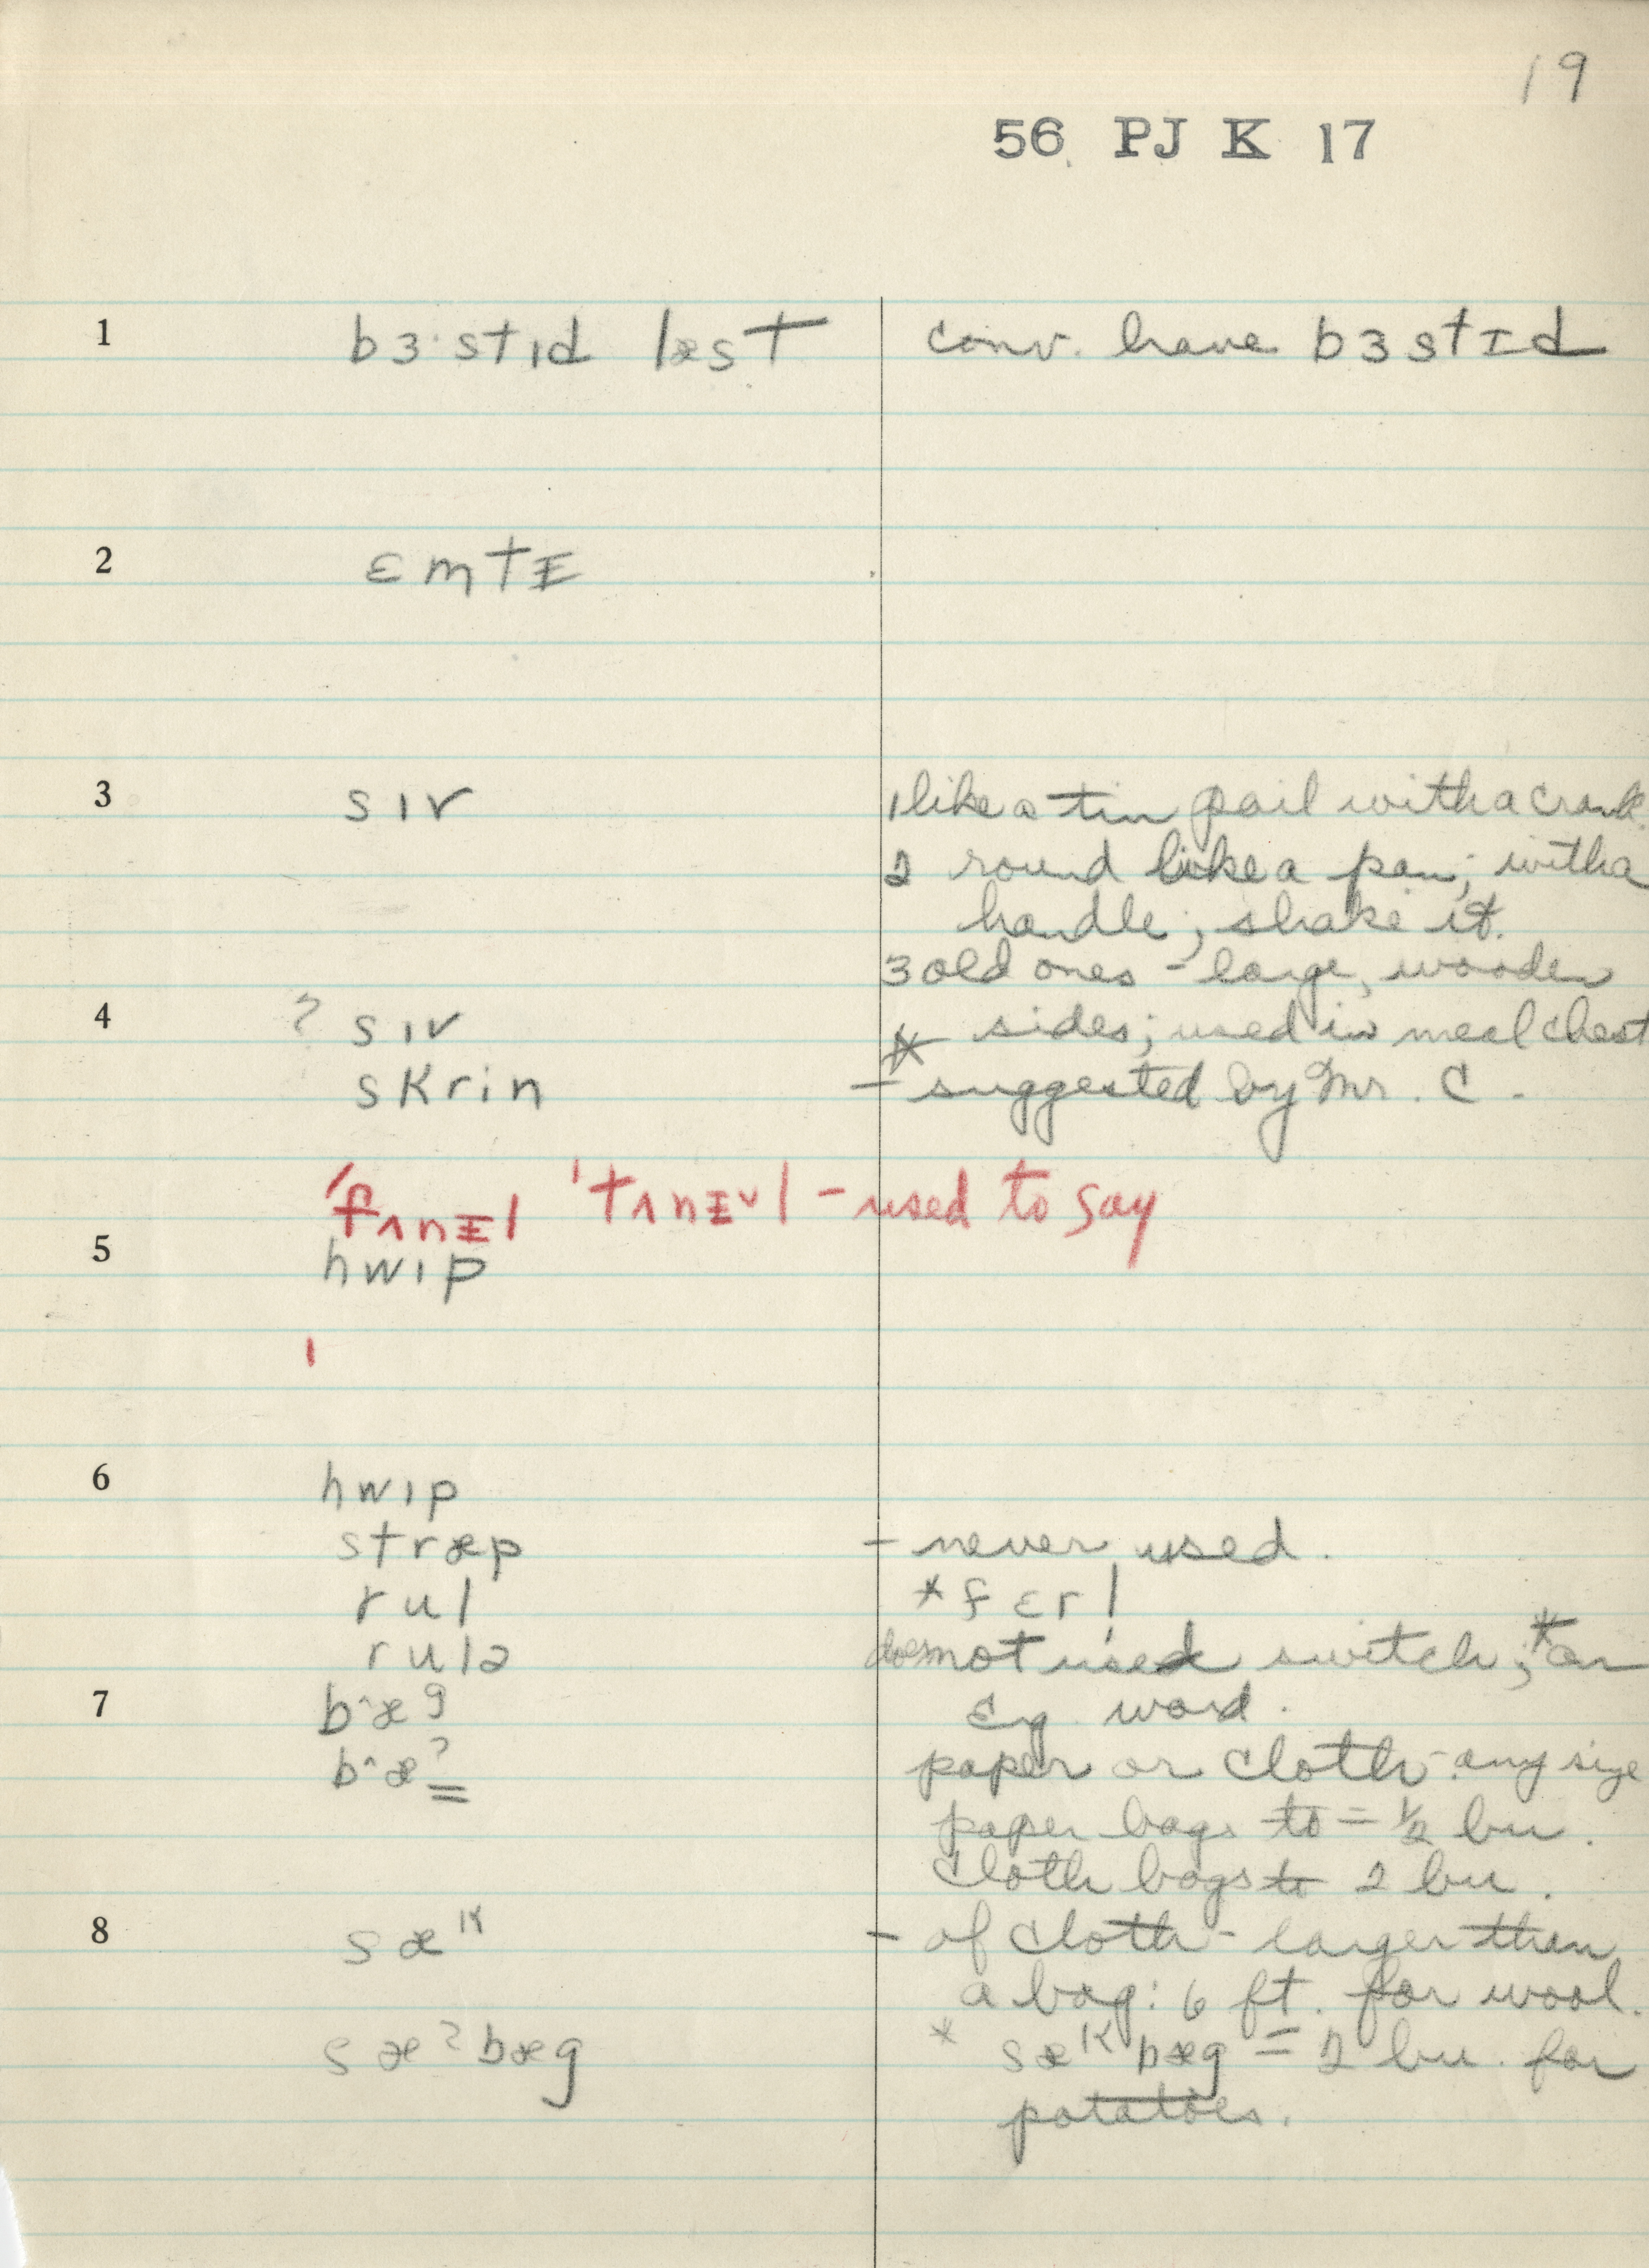 19
56 PJ K 17
1 bɜ·stɪd læst conv. have bɜstɪd
2 ɛmtɪ
3 sɪv 1 like a tin pail with a crank.
2 round like a pan; with a
handle; shake it.
3 old ones - large, wooden
4 ? sɪv * sides; used in meal chest
skrin - suggested by Mr. C.
'fʌnɪl 'tʌnɪl - used to say
5 hwɪp
6 hwɪp
stræp - never used.
rul * fɛrl
rulə does not use switch; * an
7 b^æg Eng. word.
b^æ? paper or cloth - any size
paper bags to = ½ bu.
cloth bags to 2 bu.
8 sæk - of cloth - larger than
a bag: 6 ft. for wool.
sæʔbæg * sækbæg = 2 bu. for
potatoes.